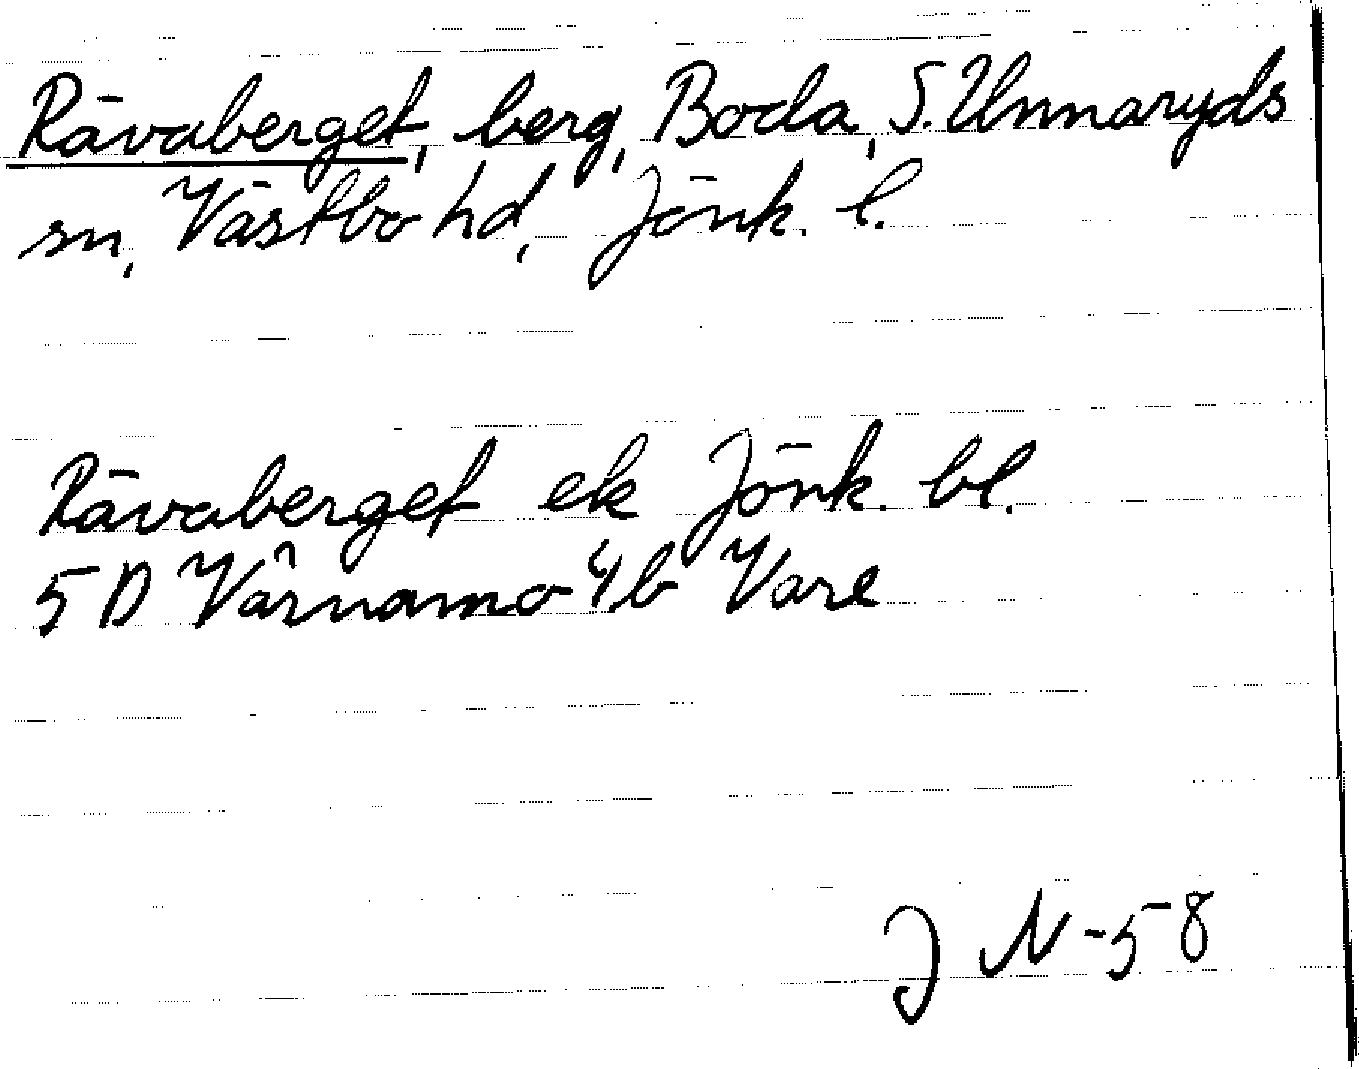 Rävaberget, berg, Boda, S. Unnaryds
sn, Västbo hd, Jönk. l.
Rävaberget ek Jönk. bl.
5 D Värnamo 4b Vare
J N-58